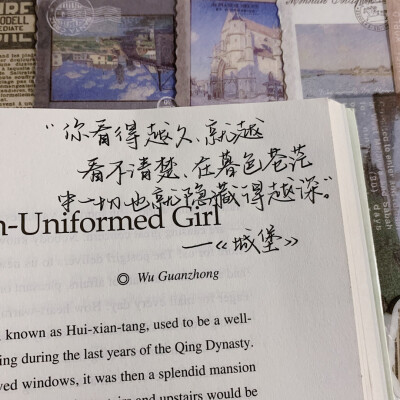 "你看得越久、就越
看不清楚、在暮色苍茫
中一切也就隐藏得越深。"
—《城堡》
n-Uniformed Girl
◎ Wu Guanzhong
known as Hui-xian-tang, used to be a well-
ing during the last years of the Qing Dynasty.
ved windows, it was then a splendid mansion
and upstairs would be